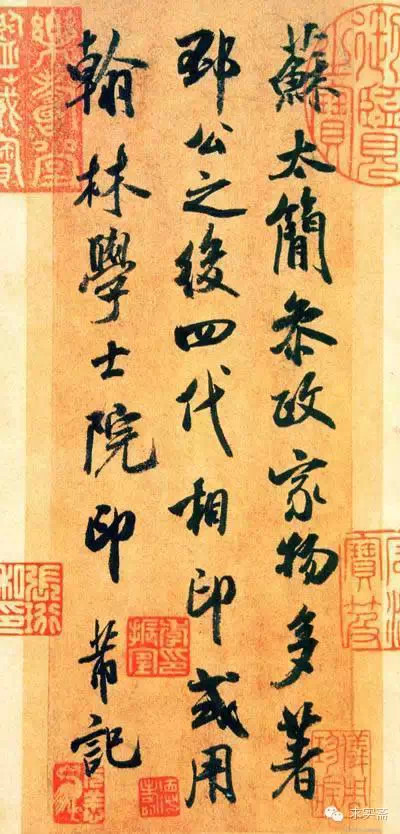 蘇太簡參政家物多著
邳公之後四代相印或用
翰林學士院印 芾記
求实斋